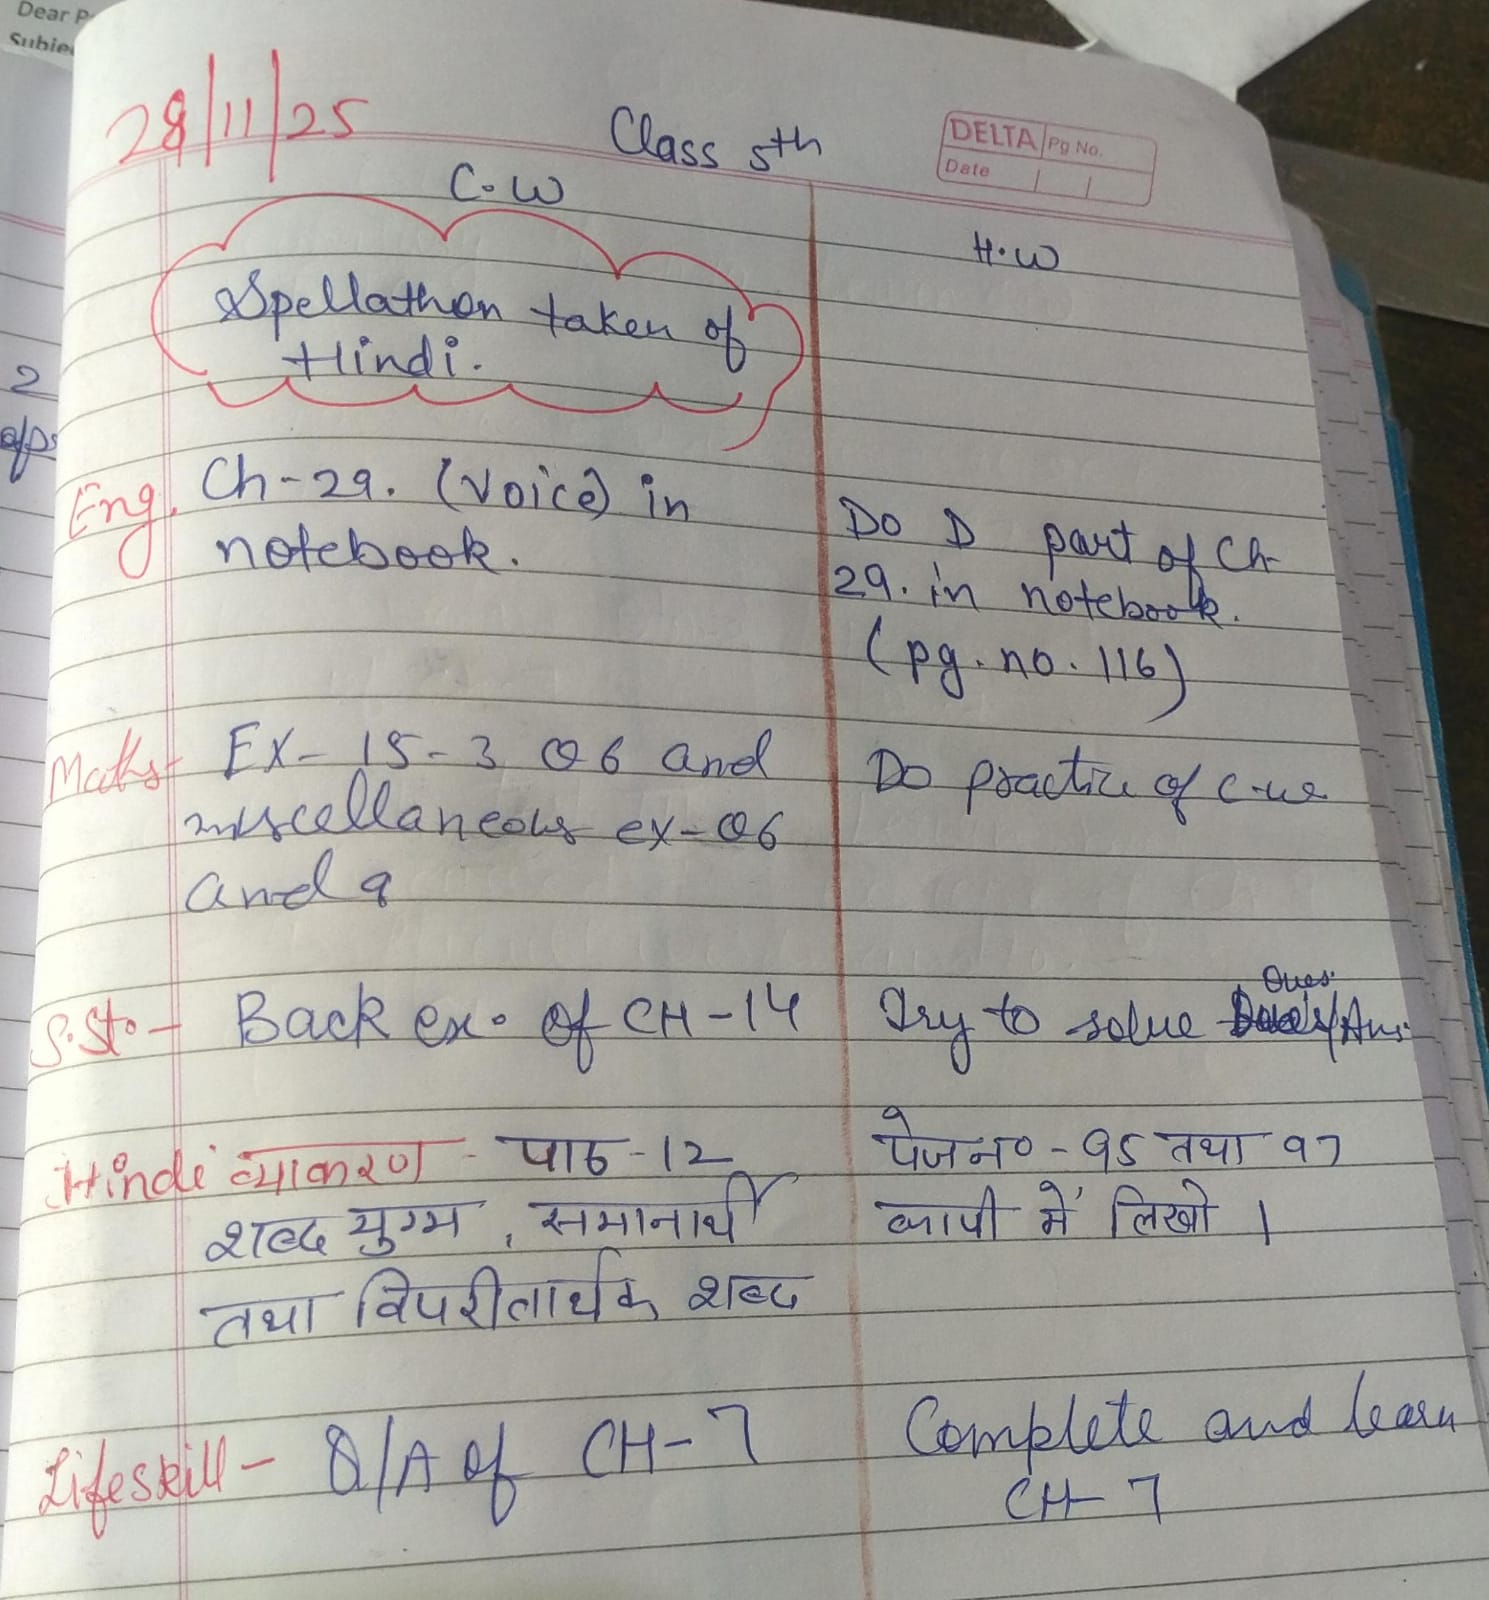 Dear P
Subje
28/11/25
Class 5th
DELTA Pg No.
Date
C.W
H.W
Spellathon taken of
Hindi.
2
Eng. Ch-29. (Voice) in
notebook.
Do D part of Ch-
29. in notebook.
(pg. no. 116)
Maths- Ex- 15-3 Q6 and
miscellaneous ex- Q6
and 9
Do practice of c.w
S.St. - Back ex. of CH-14
Try to solve Ques./Ans.
Hindi व्याकरण - पाठ-12
शब्द युग्म, समानार्थी
तथा विपरीतार्थक शब्द
पेज न० - 95 तथा 97
कापी में लिखो ।
Lifeskill - Q/A of CH-7
Complete and learn
CH-7